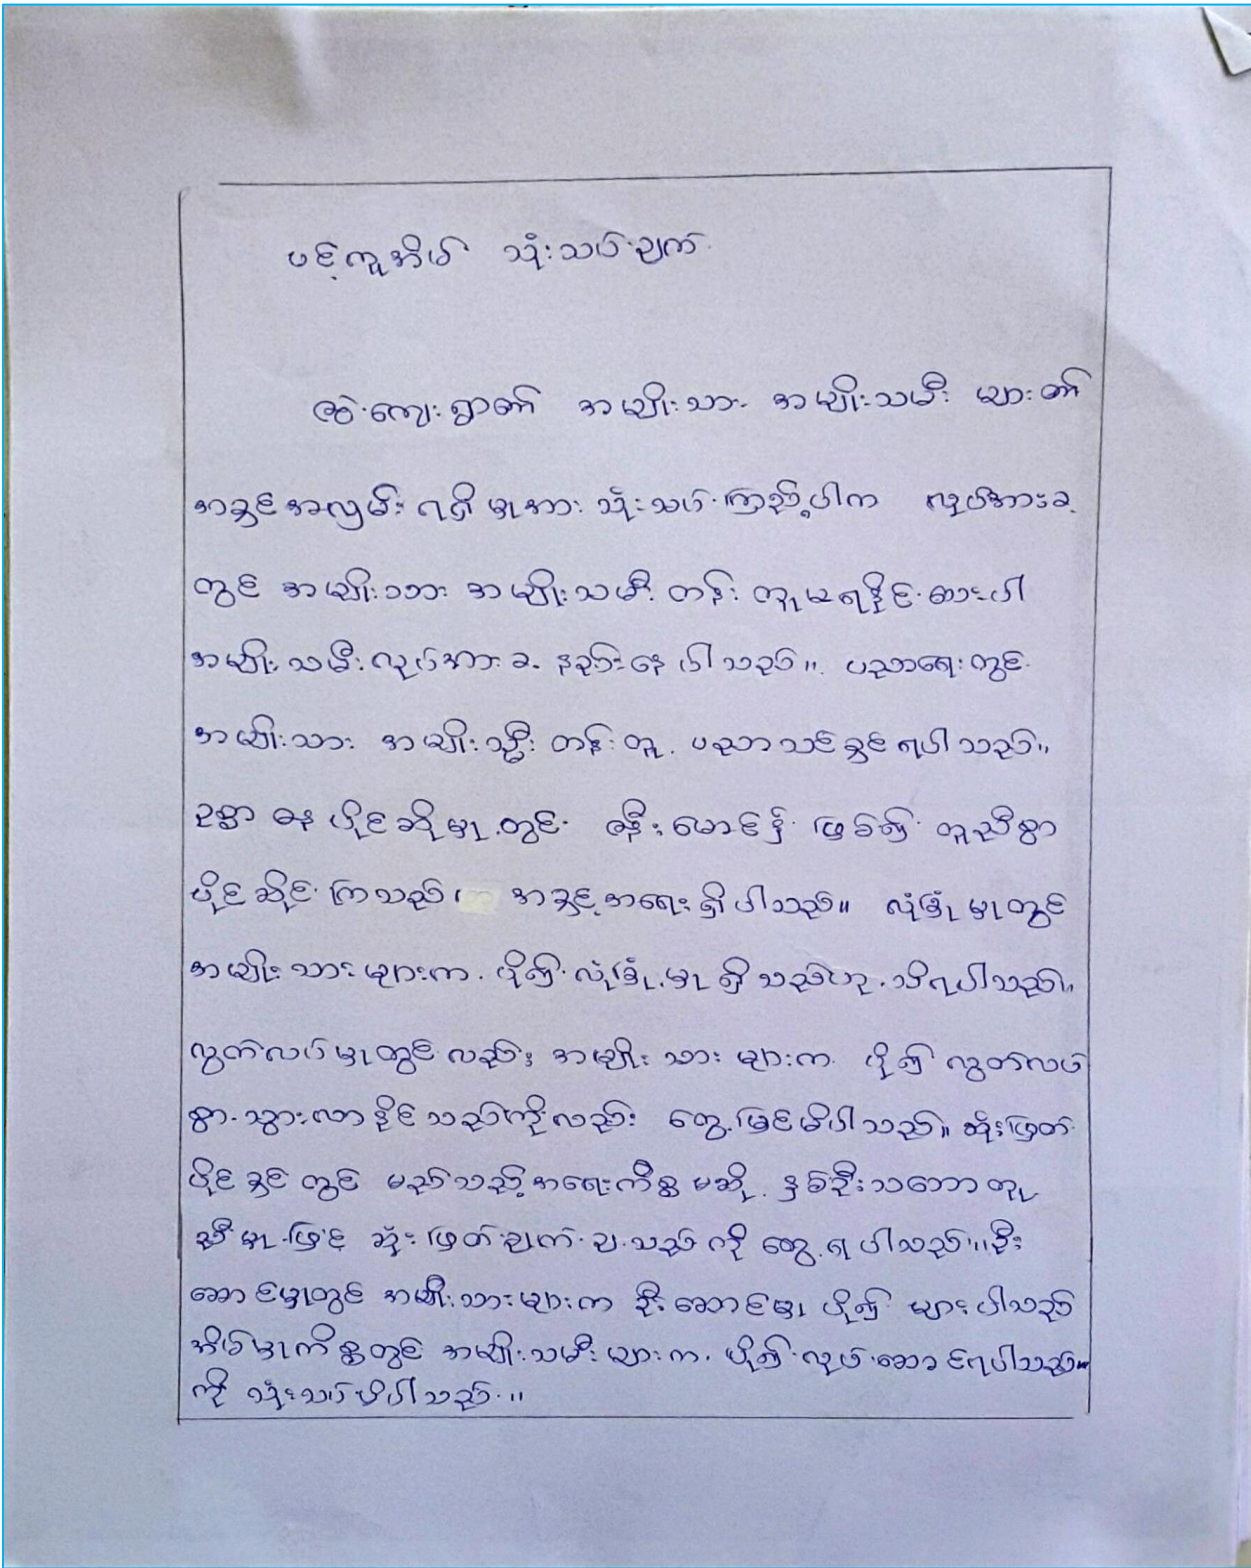 ပင့်ကူအိမ် သုံးသပ်ချက်
ဆွဲကျေးရွာ၏ အမျိုးသား အမျိုးသမီး များ၏
အခွင့်အလှမ်း ရရှိမှုအား သုံးသပ်ကြည့်ပါက လုပ်အားခ
တွင် အမျိုးသား အမျိုးသမီး တန်းတူမရနိုင်သေးပါ
အမျိုးသမီးလုပ်အားခ နည်းနေပါသည်။ ပညာရေးတွင်
အမျိုးသား အမျိုးသ္မီး တန်းတူ ပညာသင်ခွင့်ရပါသည်။
ဥစ္စာဓန ပိုင်ဆိုမှုတွင် ဇနီးမောင်နှံ ဖြစ်၍ တူညီစွာ
ပိုင်ဆိုင်ကြသည် အခွင့်အရေးရှိပါသည်။ လုံခြုံမှုတွင်
အမျိုးသားများက ပို၍ လုံခြုံမှု ရှိသည်ဟု သိရပါသည်။
လွတ်လပ်မှုတွင်လည်း အမျိုးသားများက ပို၍ လွတ်လပ်
စွာ သွားလာနိုင်သည်ကိုလည်း တွေ့မြင်မိပါသည်။ ဆုံးဖြတ်
ပိုင်ခွင့်တွင် မည်သည့်အရေးကိစ္စမဆို နှစ်ဦးသဘောတူ
ညီမှုဖြင့် ဆုံးဖြတ်ချက်ချသည်ကို တွေ့ရပါသည်။ ဦး
ဆောင်မှုတွင် အမျိုးသားများက ဦးဆောင်မှု ပို၍ များပါသည်
အိမ်မှုကိစ္စတွင် အမျိုးသမီးများက ပို၍လုပ်ဆောင်ရပါသည်။
ကို သုံးသပ်မိပါသည်။